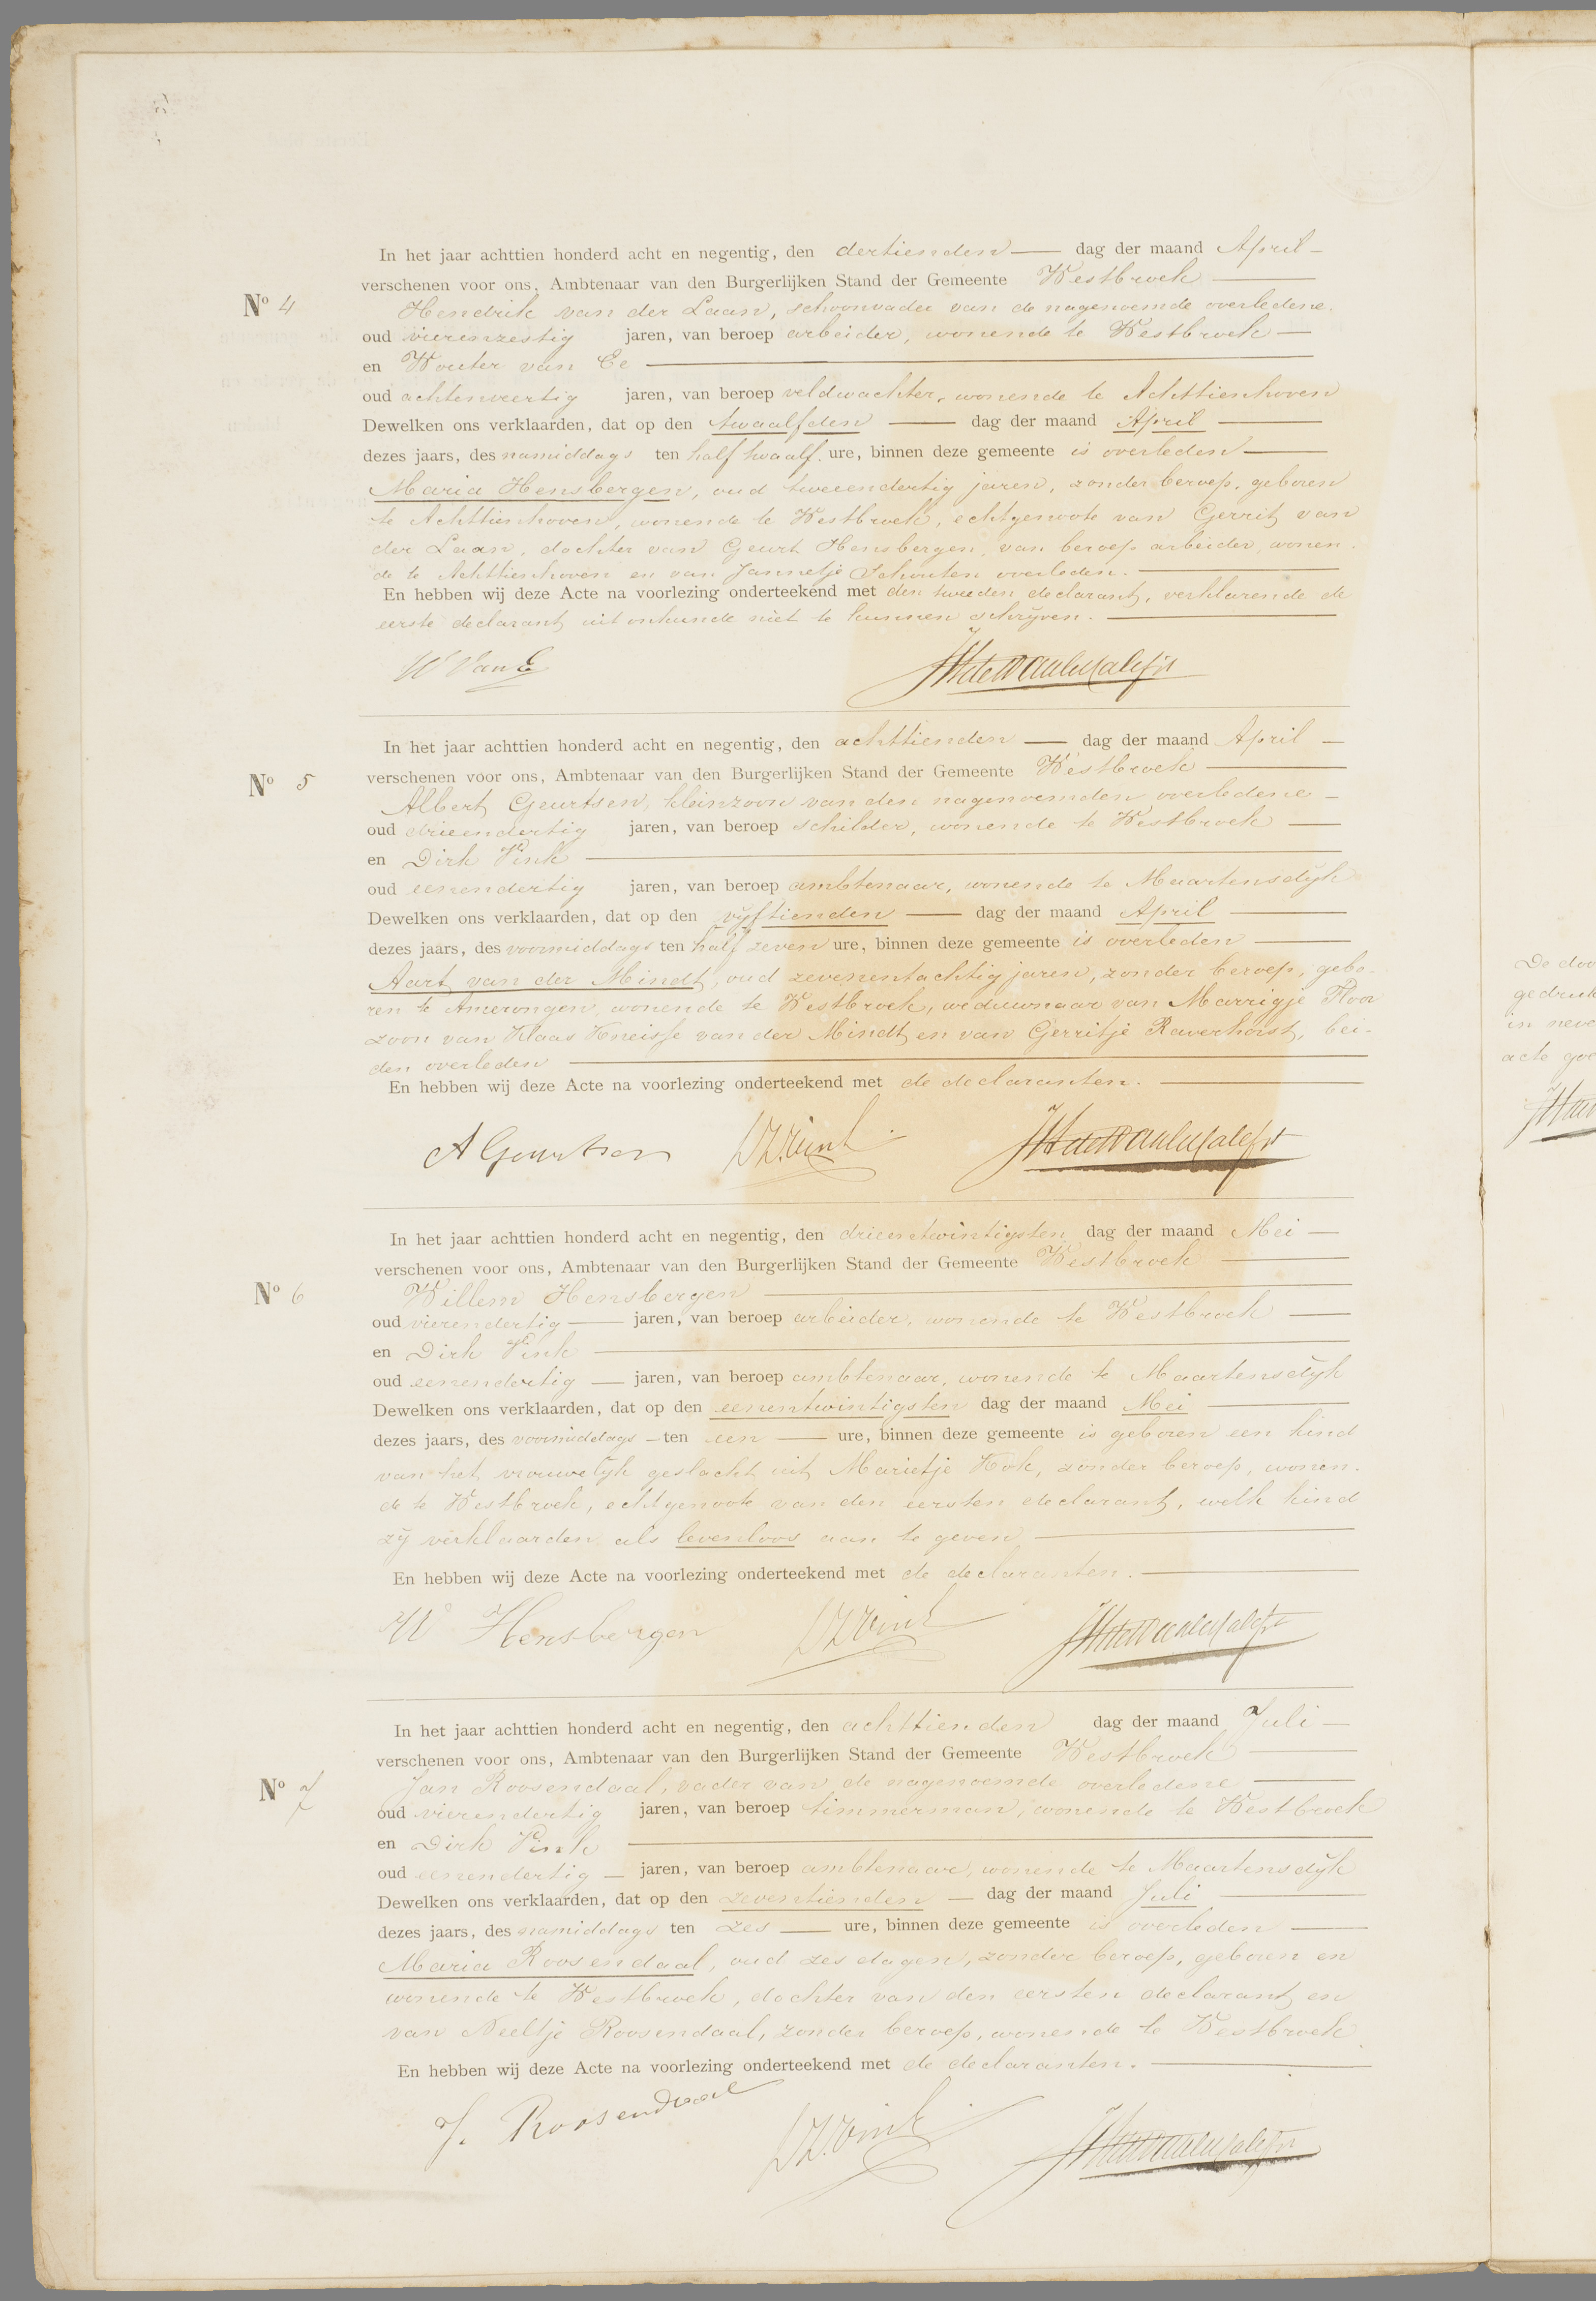 In het jaar achttien honderd acht en negentig, den dertienden dag der maand April
verschenen voor ons, Ambtenaar van den Burgerlijken Stand der Gemeente Westbroek
No 4
Hendrik van der Laan, schoonvader van de nagenoemde overledene.
oud vierenzestig jaren, van beroep arbeider, wonende te Westbroek
en Wouter van Ee
oud achtenveertig jaren, van beroep veldwachter, wonende te Achttienhoven
Dewelken ons verklaarden, dat op den twaalfden dag der maand April
dezes jaars, des namiddags ten half twaalf ure, binnen deze gemeente is overleden
Maria Hensbergen, oud tweeendertig jaren, zonder beroep, geboren
te Achttienhoven, wonende te Westbroek, echtgenoote van Gerrit van
der Laan, dochter van Geurt Hensbergen, van beroep arbeider, wonen-
de te Achttienhoven en van Jannetje Schouten overleden.
En hebben wij deze Acte na voorlezing onderteekend met den tweeden declarant, verklarende de
eerste declarant uit onkunde niet te kunnen schrijven.
W Van E
In het jaar achttien honderd acht en negentig, den achttienden dag der maand April
verschenen voor ons, Ambtenaar van den Burgerlijken Stand der Gemeente Westbroek
No 5
Albert Geurtsen, kleinzoon van den nagenoemden overledene
oud drieendertig jaren, van beroep schilder, wonende te Westbroek
en Dirk Vink
oud eenendertig jaren, van beroep ambtenaar, wonende te Maartensdijk
Dewelken ons verklaarden, dat op den vijftienden dag der maand April
dezes jaars, des voormiddags ten half zeven ure, binnen deze gemeente is overleden
Aart van der Mindt, oud zevenentachtig jaren, zonder beroep, gebo-
ren te Amerongen, wonende te Westbroek, weduwnaar van Marrigje Floor
zoon van Klaas Kneisse van der Mindt en van Gerritje Raverhorst, bei-
den overleden
En hebben wij deze Acte na voorlezing onderteekend met de declaranten.
A Geurtsen DZ.Vink
In het jaar achttien honderd acht en negentig, den drieentwintigsten dag der maand Mei
verschenen voor ons, Ambtenaar van den Burgerlijken Stand der Gemeente Westbroek
No 6
Willem Hensbergen
oud vierendertig jaren, van beroep arbeider, wonende te Westbroek
en Dirk Vink
oud eenendertig jaren, van beroep ambtenaar, wonende te Maartensdijk
Dewelken ons verklaarden, dat op den eenentwintigsten dag der maand Mei
dezes jaars, des voormiddags ten een ure, binnen deze gemeente is geboren een kind
van het vrouwelijk geslacht uit Marietje Kok, zonder beroep, wonen-
de te Westbroek, echtgenoote van den eersten declarant, welk kind
zij verklaarden als levenloos aan te geven
En hebben wij deze Acte na voorlezing onderteekend met de declaranten.
W Hensbergen DZ.Vink
In het jaar achttien honderd acht en negentig, den achttienden dag der maand Juli
verschenen voor ons, Ambtenaar van den Burgerlijken Stand der Gemeente Westbroek
No 7
Jan Roosendaal, vader van de nagenoemde overledene
oud vierendertig jaren, van beroep timmerman, wonende te Westbroek
en Dirk Vink
oud eenendertig jaren, van beroep ambtenaar, wonende te Maartensdijk
Dewelken ons verklaarden, dat op den zeventienden dag der maand Juli
dezes jaars, des namiddags ten zes ure, binnen deze gemeente is overleden
Maria Roosendaal, oud zes dagen, zonder beroep, geboren en
wonende te Westbroek, dochter van den eersten declarant en
van Neeltje Roosendaal, zonder beroep, wonende te Westbroek.
En hebben wij deze Acte na voorlezing onderteekend met de declaranten.
J. Roosendaal DZ.Vink
De doo
gedruk
in neve
acte goe